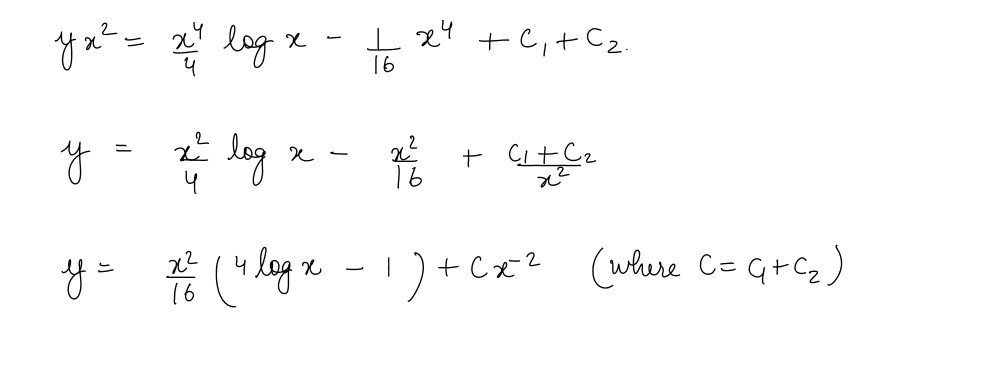 yx² = x⁴/4 log x - 1/16 x⁴ + C₁ + C₂.
y = x²/4 log x - x²/16 + (C₁ + C₂)/x²
y = x²/16 (4 log x - 1) + Cx⁻² (where C = C₁ + C₂)